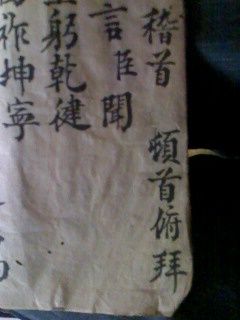 稽首 頓首俯拜
言臣聞
躬乾健
祚坤寧